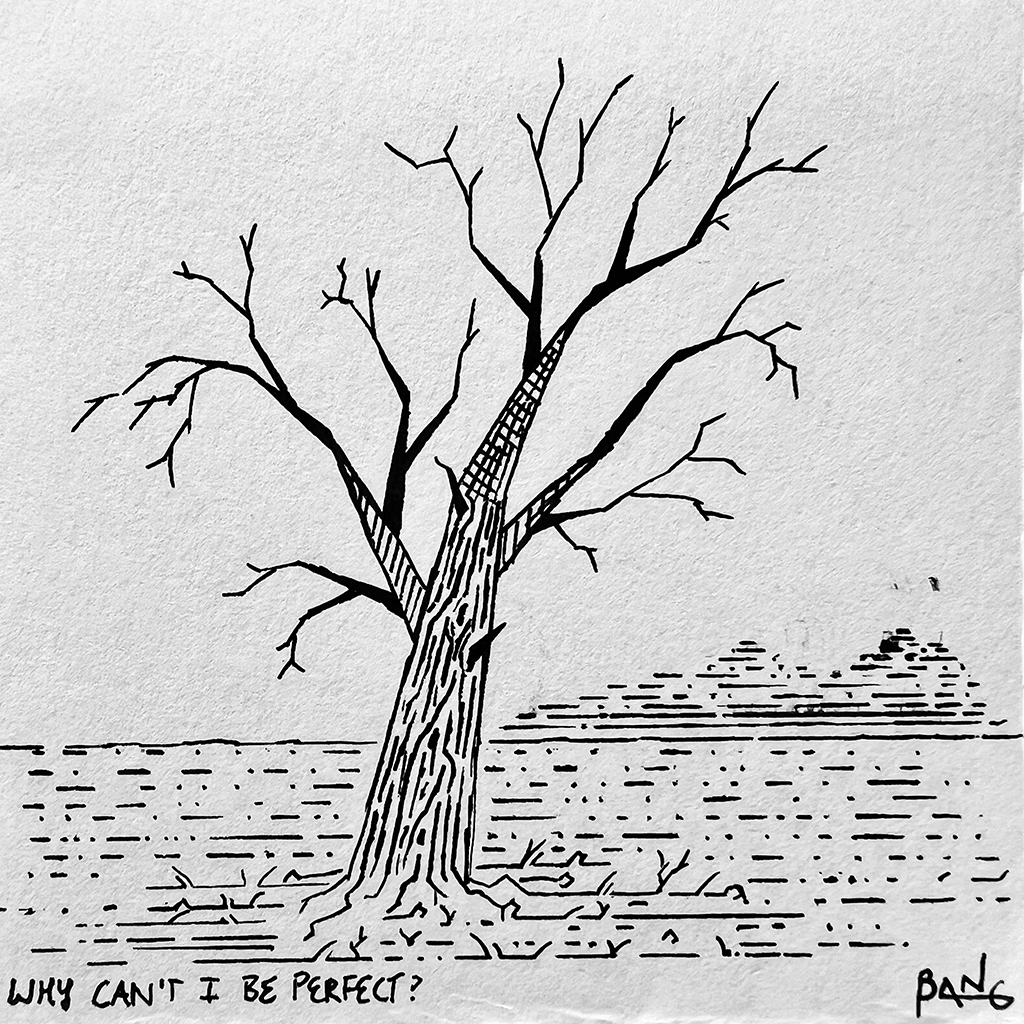 WHY CAN'T I BE PERFECT?
BANG